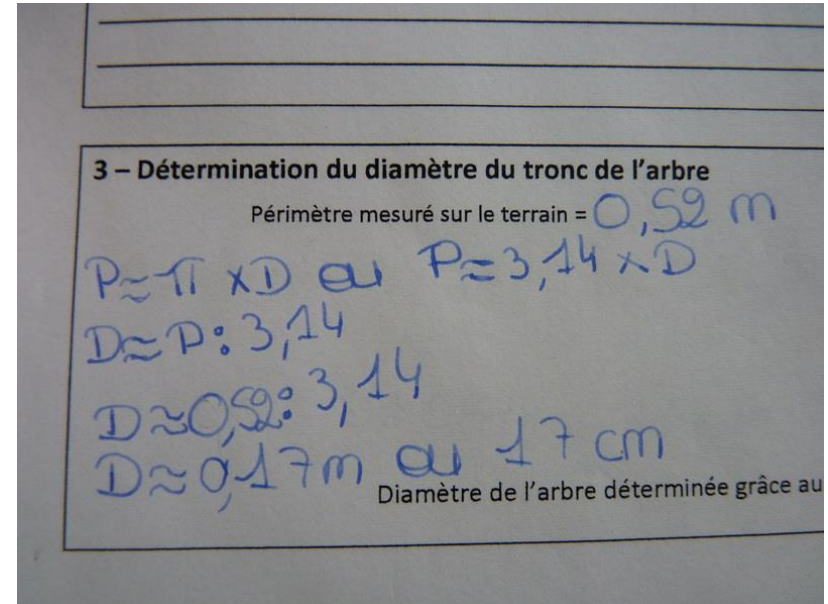 3 – Détermination du diamètre du tronc de l'arbre
Périmètre mesuré sur le terrain = 0,52 m
P≈π x D ou P≈3,14 x D
D≈P:3,14
D≈0,52:3,14
D≈0,17m ou 17 cm
Diamètre de l'arbre déterminée grâce au